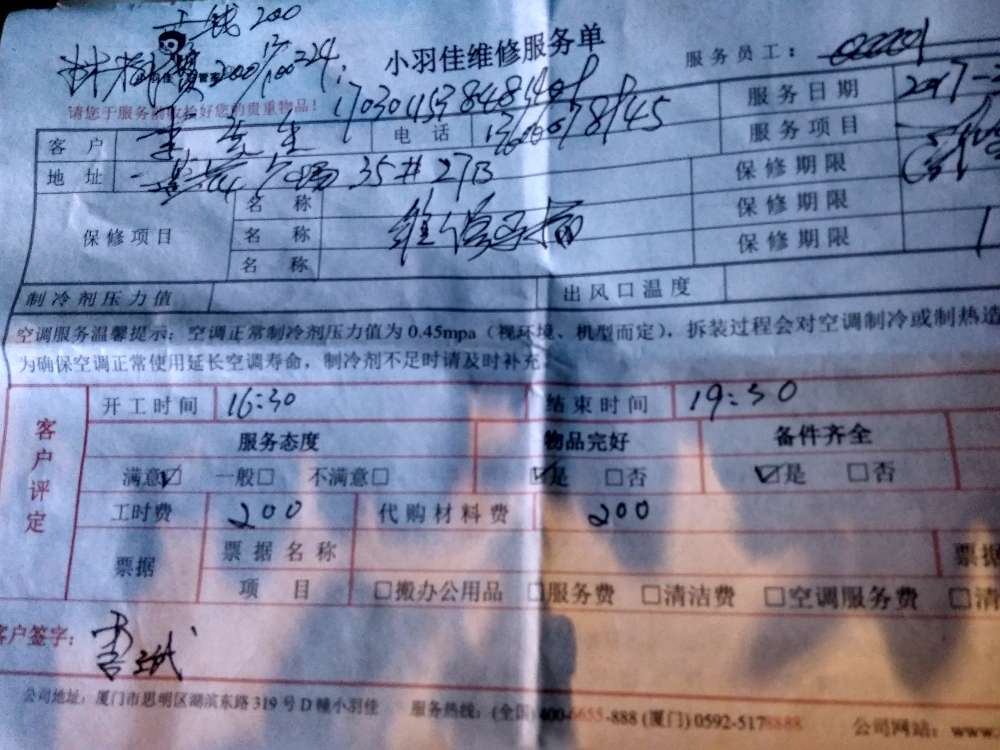 工钱200
小羽佳维修服务单
服务员工：
请您于服务前收拾好您的贵重物品！
客户
电话
服务日期 2017-
地址 35#27B
服务项目
保修项目
名称
保修期限
名称
保修期限
名称
保修期限 1
制冷剂压力值
出风口温度
空调服务温馨提示：空调正常制冷剂压力值为0.45mpa（视环境、机型而定），拆装过程会对空调制冷或制热造
为确保空调正常使用延长空调寿命，制冷剂不足时请及时补充。
客户评定
开工时间 16:30 结束时间 19:30
服务态度 物品完好 备件齐全
满意☑ 一般□ 不满意□ ☑是 □否 ☑是 □否
工时费 200 代购材料费 200
票据 票据名称 票据
项目 □搬办公用品 □服务费 □清洁费 □空调服务费 □清
客户签字：
公司地址：厦门市思明区湖滨东路319号D幢小羽佳 服务热线：(全国)400-6655-888 (厦门) 0592-5178888 公司网站：www.